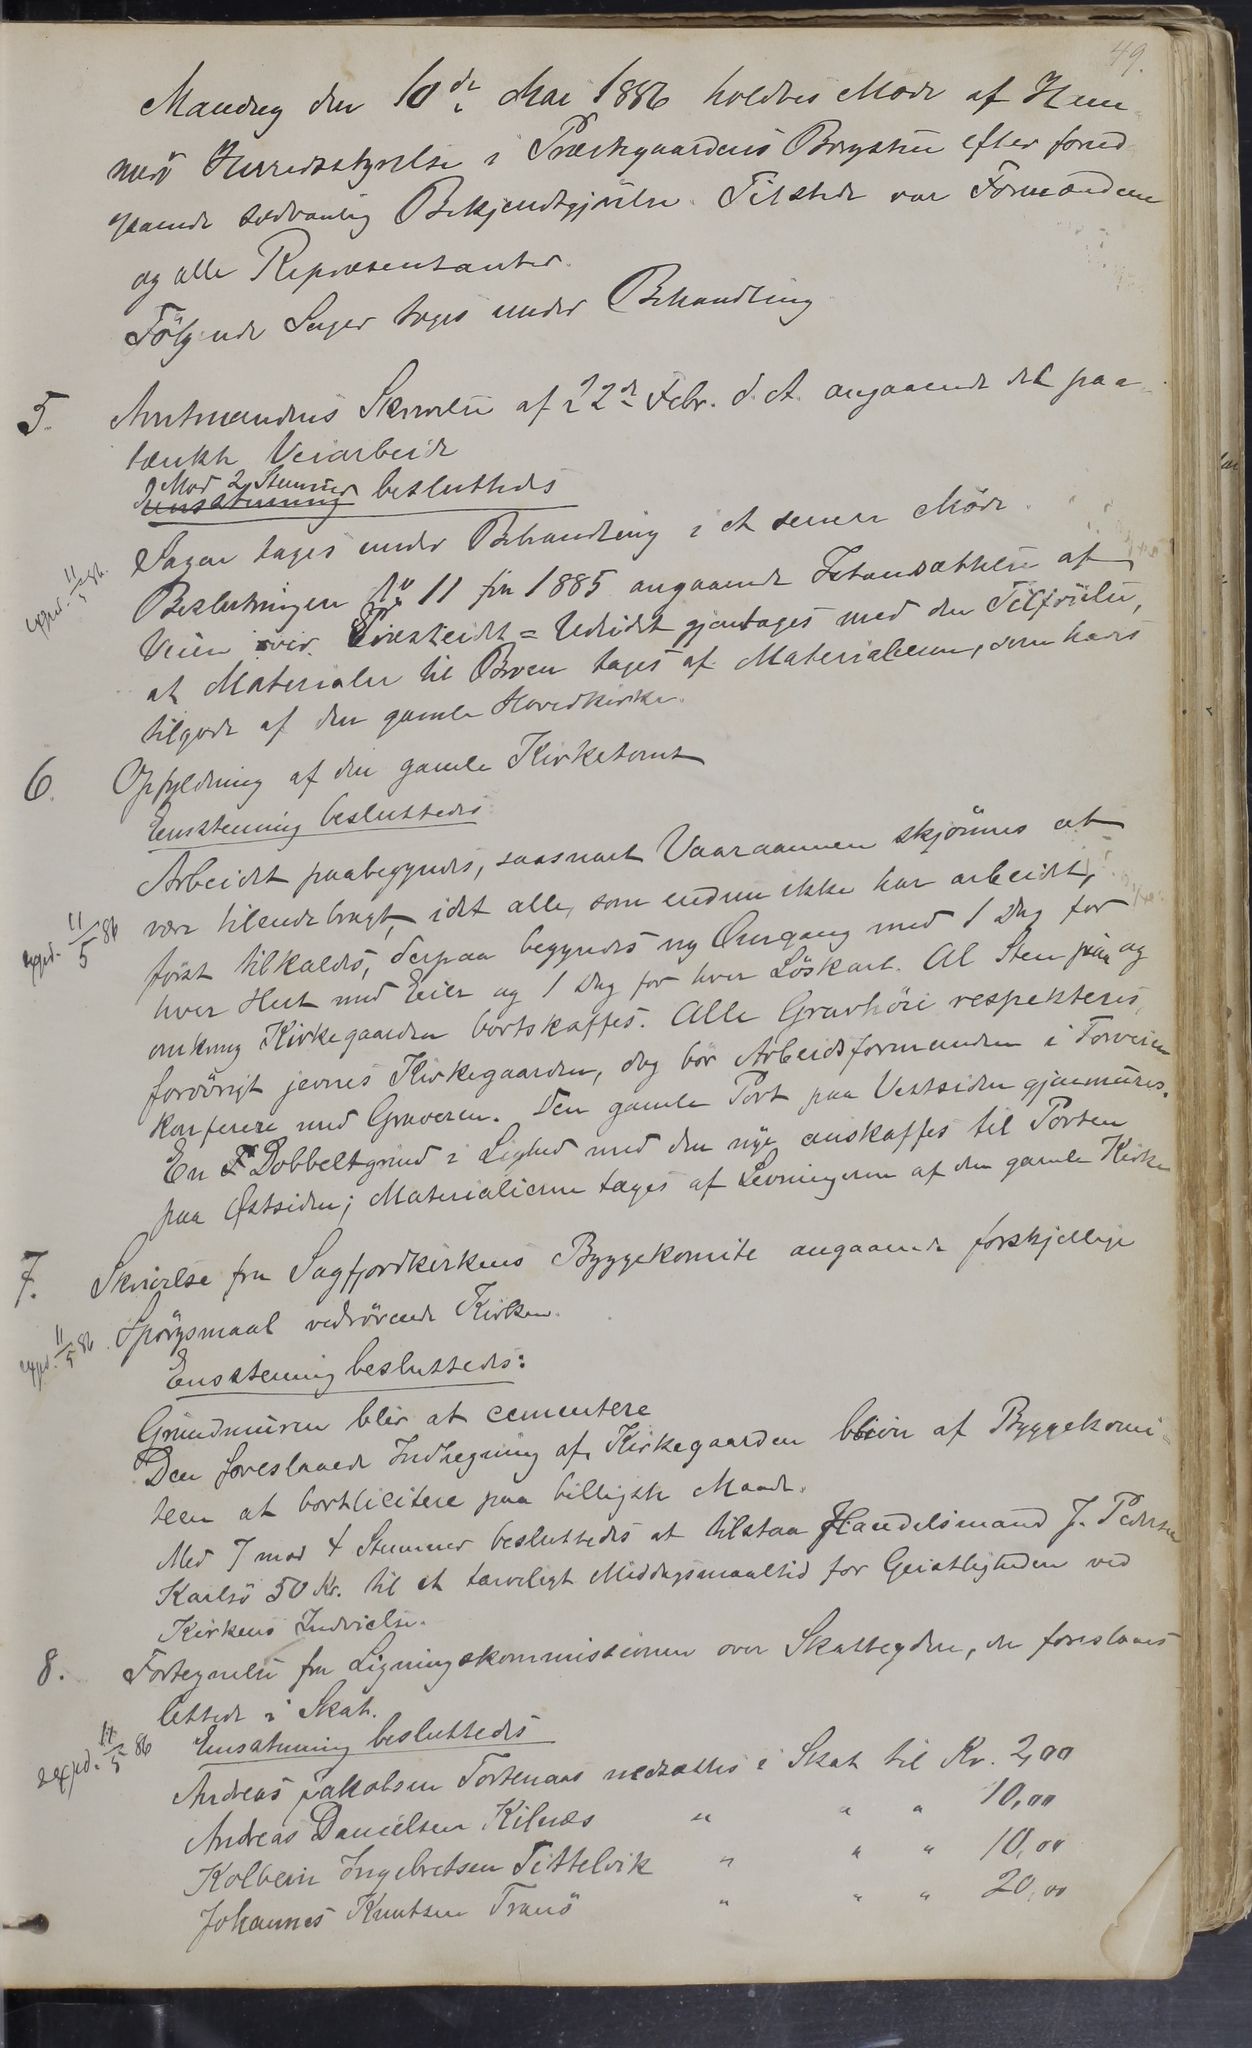 49.
Mandag den 10de Mai 1886 holdtes Møde af Ham-
merø Herredsstyrelse i Præstegaardens Borgstue efter forud-
gaaende sedvanlig Bekjendtgjørelse. Tilstede var Formændene
og alle Repræsentanter.
Følgende Sager toges under Behandling
5. Amtmandens Skrivelse af 22de Febr. d. A. angaaende det paa-
tænkte Veiarbeide
Mod 2 Stemmer
Enstemmig besluttedes
Sagen tages under Behandling i et senere Møde.
exped. 11/5 86.
Beslutningen No 11 fra 1885 angaaende Istandsættelse af
Veien over Eidet gjentages med den Tilføielse,
at Materialer til Broen tages af Materialierne, som haves
tilgode af den gamle Hovedkirke.
6. Opfyldning af den gamle Kirketomt
Enstemmig besluttedes
Arbeidet paabegyndes, saasnart Vaaraannen skjønnes at
være tilendebragt, idet alle, som endnu ikke har arbeidet,
exped. 11/5 86
først tilkaldes, derpaa begyndes ny Omgang med 1 Dag for
hver Hest med Eier og 1 Dag for hver Løskarl. Al Sten paa og
omkring Kirkegaarden bortskaffes. Alle Gravhøie respekteres,
forøvrigt jevnes Kirkegaarden, dog bør Arbeidsformanden i Forveien
konferere med Graveren. Den gamle Port paa Vestsiden gjenmures.
En Dobbeltgrind i Lighed med den nye anskaffes til Porten
paa Østsiden; Materialierne tages af Levningerne af den gamle Kirke
7. Skrivelse fra Sagfjordkirkens Byggekomite angaaende forskjellige
Spørgsmaal vedrørende Kirken.
exped. 11/5 86
Enstemmig besluttedes:
Grundmuren blir at cementere
Den foreslaaede Indhegning af Kirkegaarden bliver af Byggekomi-
teen at bortlicitere paa billigste Maade.
Med 7 mod 4 Stemmer besluttedes at tilstaa Handelsmand J. Pedersen
Karlsø 50 Kr. til et tarveligt Middagsmaaltid for Geistligheden ved
Kirkens Indvielse.
8. Fortegnelse fra Ligningskommissionen over Skatteydere, der foreslaaes
lettede i Skat.
Enstemmig besluttedes
exped. 11/5 86
Andreas Jakobsen Tortenaas nedsættes i Skat til Kr. 2,00
Andreas Danielsen Kilnes " " " 10,00
Kolbein Ingebretsen Tittelvik " " " 10,00
Johannes Knutsen Tranø " " " 20,00